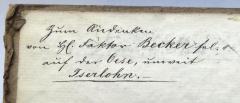 Zum Andenken
von H. Faktor Becker sel.
auf der Oese, unweit
Iserlohn.—